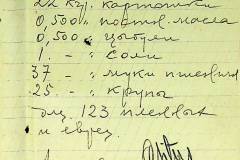 22 кг. картошки
0,500 " постн. масла
0,500 " цыбули
1. - " соли
37 - " муки пшенич
25. - " крупы
для 123 пленных
и евреев